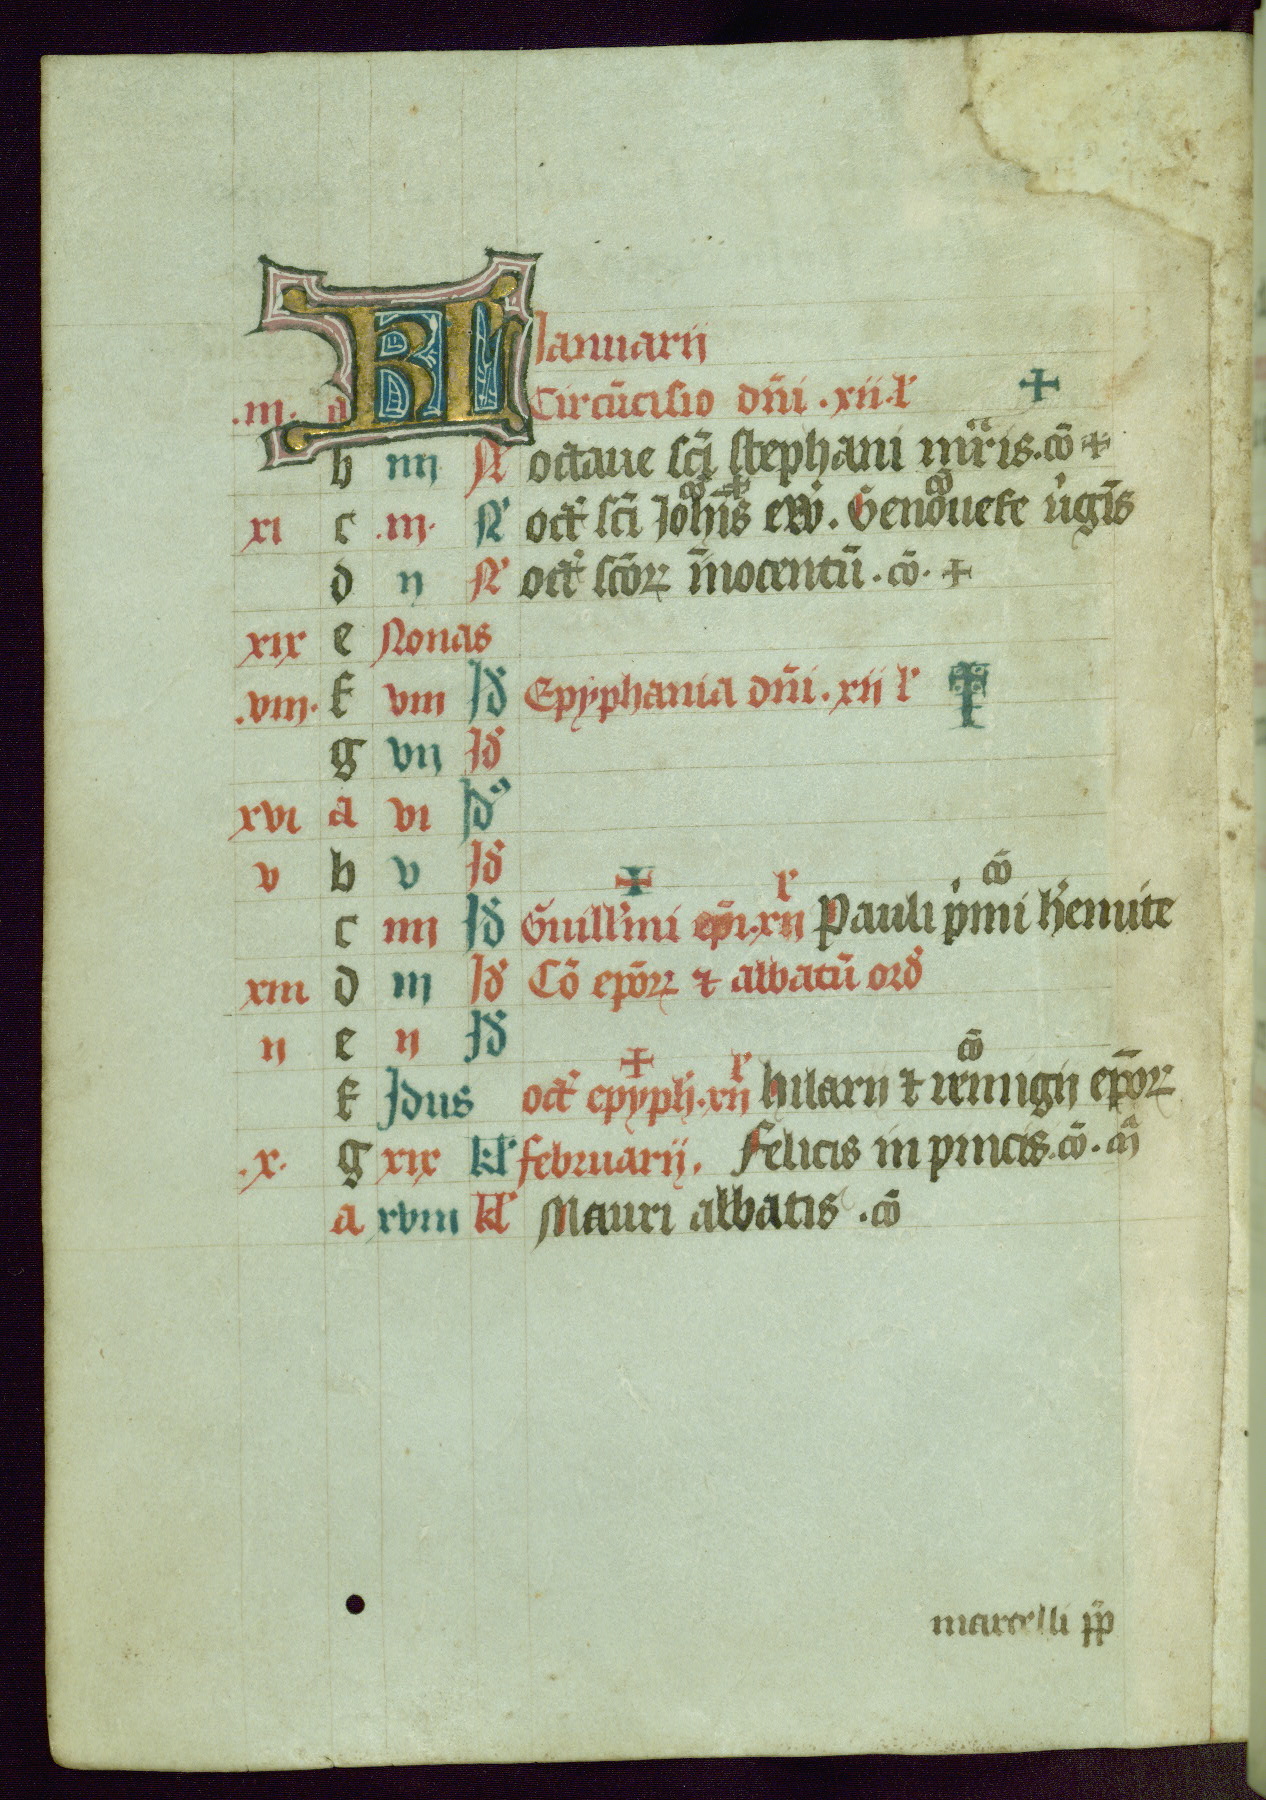 KL Januarii
.iii. a Circūcisio dñi .xii. l'
b iiij N' octaue sc̄i stephani mr̄is. cō +
xi c .iii. N' oct' sc̄i Joh̄is ew̄. cō + Genouefe ūgīs cō
d ij N' oct' sc̄oꝝ īnocentū . cō. +
xix e Nonas
.viii. f viii Id' Epyphania dñi . xii l'
g vij Id'
xvi a vi Id'
v b v Id'
c iiij Id' Guill'mi ep̄i. xii l' Pauli p'mi h'emite cō
xiii d iij Id' Cō ep̄oꝝ ⁊ abbatū ord'
ij e ij Id'
f Idus oct' epyph'. xii l' hilarii ⁊ remigij ep̄oꝝ cō
.x. g xix kl' februarij. Felicis in pincis. cō. m̄
a xviii kl' Mauri abbatis . cō
marcelli pp̄